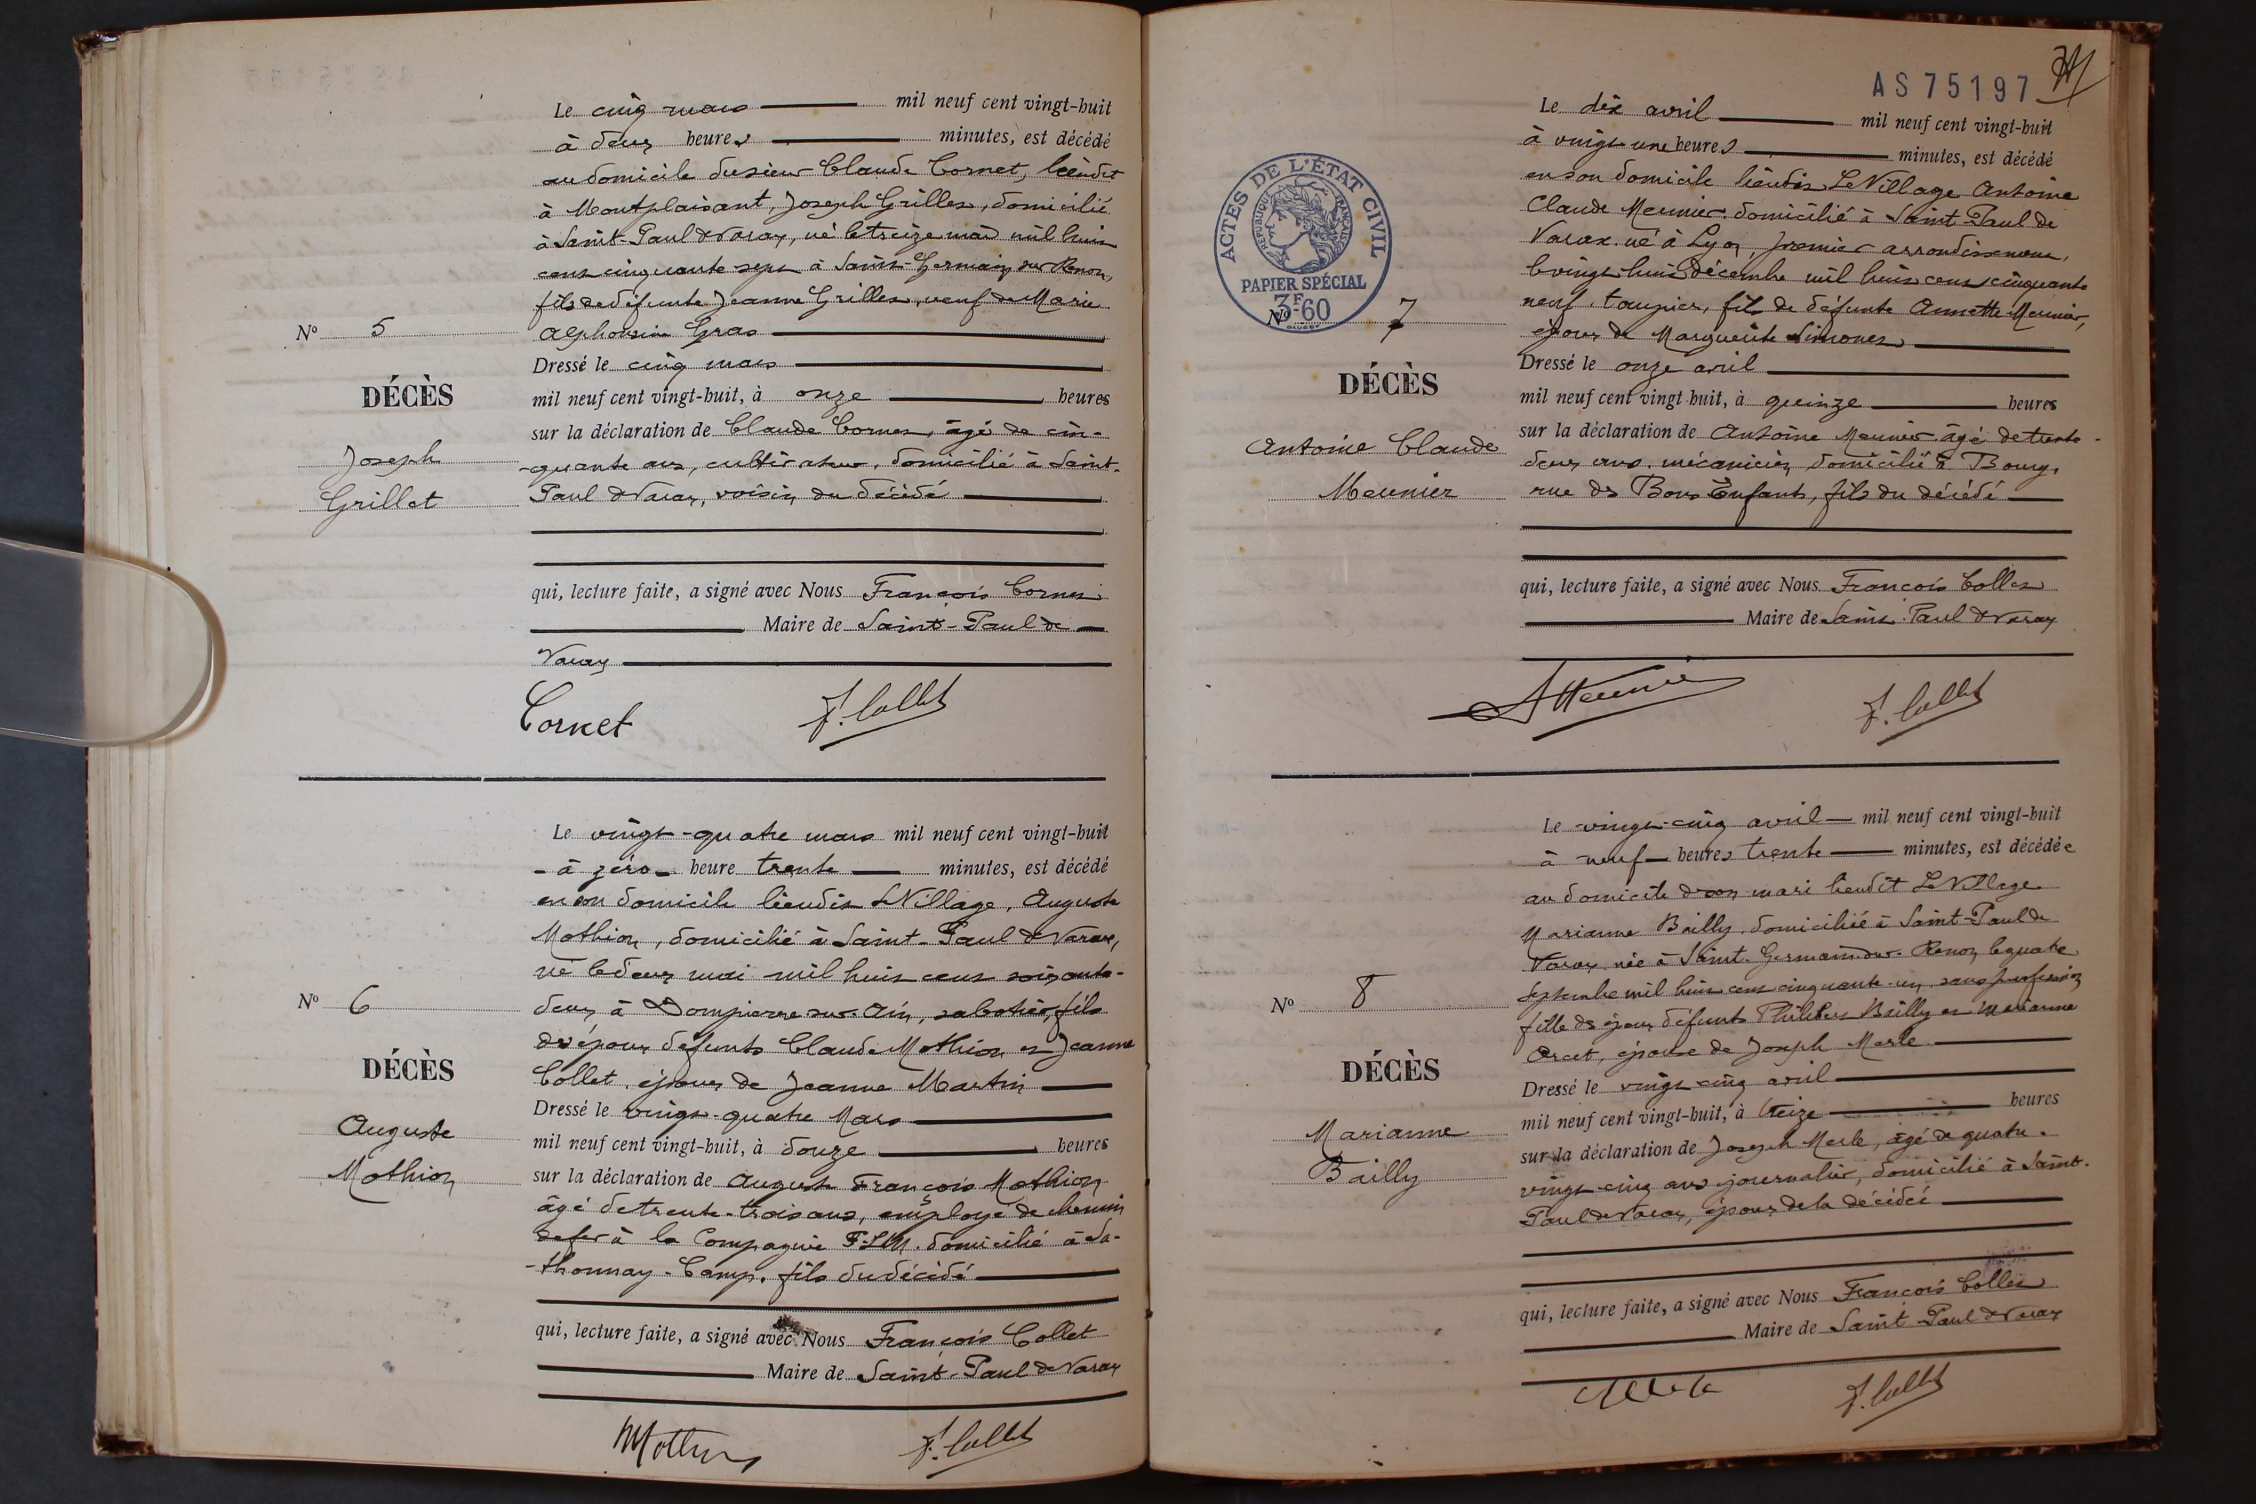 Le cinq mars mil neuf cent vingt-huit
à deux heures minutes, est décédé
au domicile du sieur Claude Cornet, lieudit
à Montplaisant, Joseph Grillet, domicilié
à Saint-Paul de Varax, né le treize mai mil huit
cent cinquante sept à Saint-Germain sur Renon,
fils de défunte Jeanne Grillet, veuf de Marie
Alphonsine Gras
Dressé le cinq mars
mil neuf cent vingt-huit, à onze heures
sur la déclaration de Claude Cornet, âgé de cin-
-quante ans, cultivateur, domicilié à Saint-
Paul de Varax, voisin du décédé
qui, lecture faite, a signé avec Nous François
Maire de Saint-Paul de
Varax
Nº 5
DÉCÈS
Joseph
Grillet
Cornet F. Collet
Le vingt-quatre mars mil neuf cent vingt-huit
- à zéro - heure trente minutes, est décédé
en son domicile lieudit Le Village, Auguste
Mothion, domicilié à Saint-Paul de Varax,
né le deux mai mil huit cent soixante-
deux à Dompierre sur Ain, sabotier, fils
des époux défunts Claude Mothion et Jeanne
Collet, époux de Jeanne Martin
Dressé le vingt-quatre Mars
mil neuf cent vingt-huit, à douze heures
sur la déclaration de Auguste François Mothion
âgé de trente-trois ans, employé de chemin
de fer à la Compagnie P.L.M. domicilié à Sa-
-thonnay-Camp, fils du décédé
qui, lecture faite, a signé avec Nous François Collet
Maire de Saint-Paul de Varax
Nº 6
DÉCÈS
Auguste
Mothion
Mothion F. Collet
AS 75197
ACTES DE L'ÉTAT CIVIL
RÉPUBLIQUE FRANÇAISE
PAPIER SPÉCIAL
3F-60
Le dix avril mil neuf cent vingt-huit
à vingt une heures minutes, est décédé
en son domicile lieudit Le Village Antoine
Claude Meunier domicilié à Saint Paul de
Varax né à Lyon, premier arrondissement,
le vingt-huit décembre mil huit cent cinquante
neuf, taupier, fils de défunte Annette Meunier,
époux de Marguerite Simonet
Dressé le onze avril
mil neuf cent vingt-huit, à quinze heures
sur la déclaration de Antoine Meunier âgé de trente-
deux ans, mécanicien domicilié à Bourg,
rue des Bons Enfants, fils du décédé
qui, lecture faite, a signé avec Nous François Collet
Maire de Saint-Paul de Varax
Nº 7
DÉCÈS
Antoine Claude
Meunier
A Meunier F. Collet
Le vingt-cinq avril mil neuf cent vingt-huit
à neuf heures trente minutes, est décédée
au domicile de son mari lieudit Le Village
Marianne Bailly, domiciliée à Saint-Paul de
Varax née à Saint-Germain-sur-Renon le quatre
septembre mil huit cent cinquante-un, sans profession
fille des époux défunts Philibert Bailly et Marianne
Orcet, épouse de Joseph Merle
Dressé le vingt cinq avril
mil neuf cent vingt-huit, à treize heures
sur la déclaration de Joseph Merle, âgé de quatre-
vingt-cinq ans journalier, domicilié à Saint-
Paul de Varax, époux de la décédée
qui, lecture faite, a signé avec Nous François Collet
Maire de Saint Paul de Varax
Nº 8
DÉCÈS
Marianne
Bailly
F. Collet